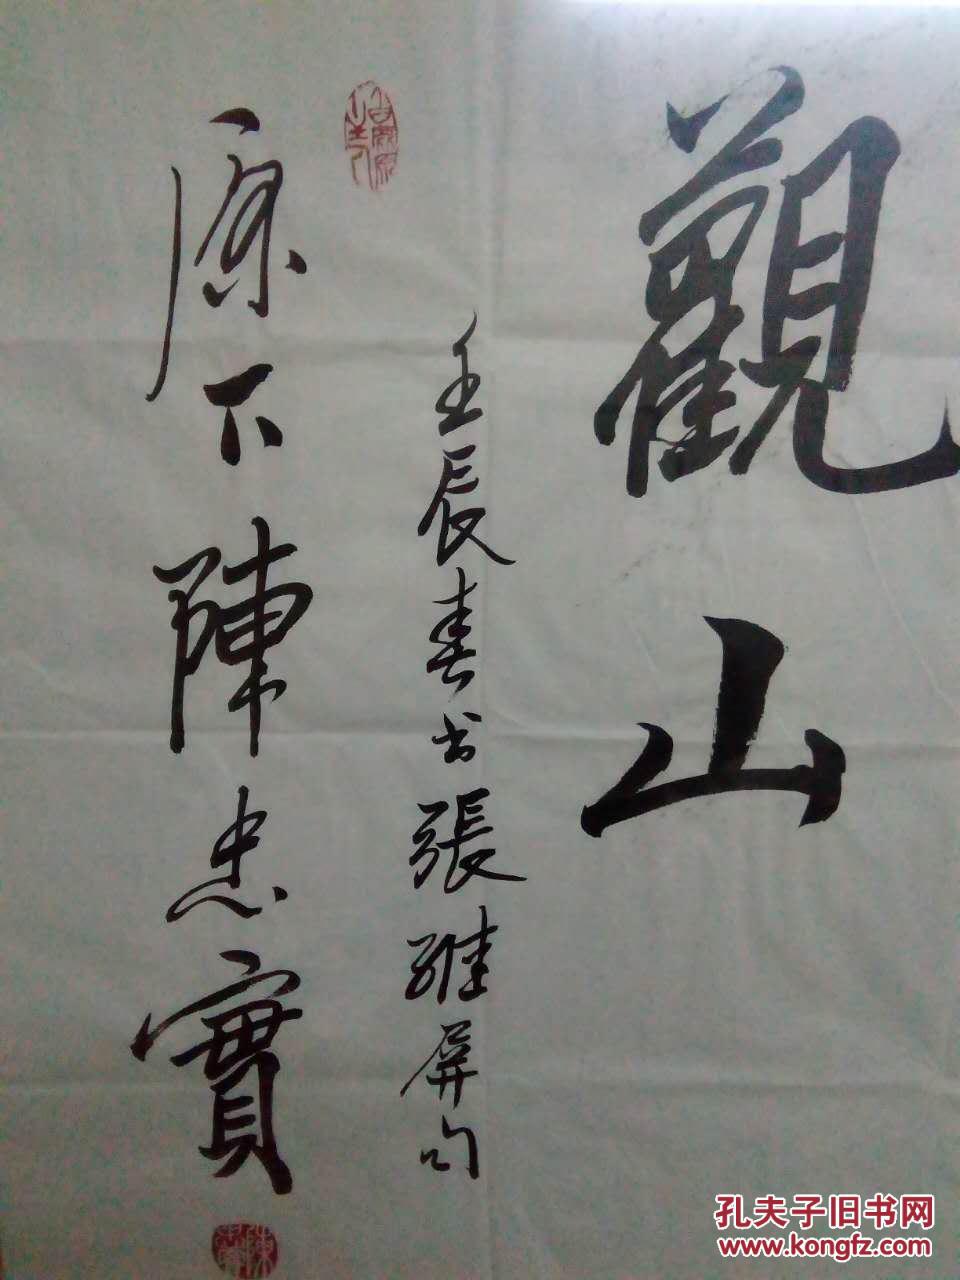 觀山
壬辰春书張維屏句
原下陳忠實
孔夫子旧书网
www.kongfz.com